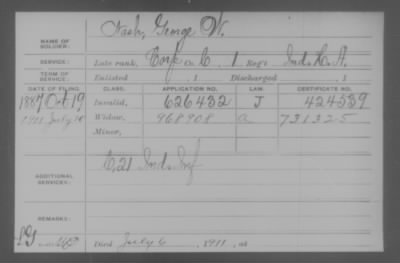 NAME OF SOLDIER: Nash, George W.
SERVICE: Late rank, Corp Co. C, 1 Regt Ind. H. A.
TERM OF SERVICE: Enlisted , 1 Discharged , 1
DATE OF FILING. CLASS. APPLICATION NO. LAW. CERTIFICATE NO.
1887 Oct 19 Invalid, 626432 J 424539
1911 July 20 Widow, 968908 a 731325
Minor,
ADDITIONAL SERVICES: C, 21 Ind. Inf
REMARKS:
Died July 6, 1911, at